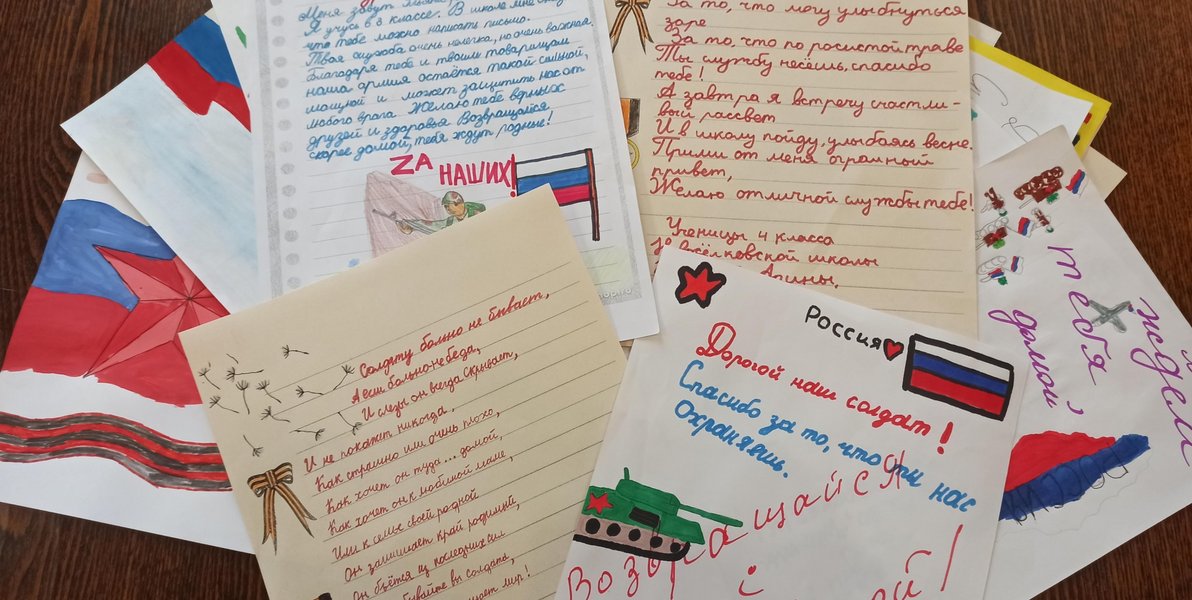 Меня зовут
Я учусь в 3 классе. В школе мне
что тебе можно написать письмо.
Твоя служба очень нелегка, но очень важная.
Благодаря тебе и твоим товарищам
наша армия остаётся такой сильной,
мощной и может защитить нас от
любого врага. Желаю тебе верных
друзей и здоровья. Возвращайся
скорее домой, тебя ждут родные!
ZА НАШИХ!
За то, что могу улыбнуться
заре
За то, что по росистой траве
Ты службу несёшь, спасибо
тебе!
А завтра я встречу счастли-
вый рассвет
И в школу пойду, улыбаясь весне.
Прими от меня огромный
привет,
Желаю отличной службы тебе!
Ученицы 4 класса
школы
Арины.
Солдату больно не бывает,
А если больно - не беда,
И слёзы он всегда скрывает,
И не покажет никогда,
Как страшно или очень плохо,
Как хочет он туда... домой,
Как хочет он к любимой маме,
Или к семье своей родной
Он защищает край родимый,
Он бьётся из последних сил
вы солдата,
мир!
Россия
Дорогой наш солдат!
Спасибо за то, что ты нас
Охраняешь.
Возвращайся
ждём
тебя
домой